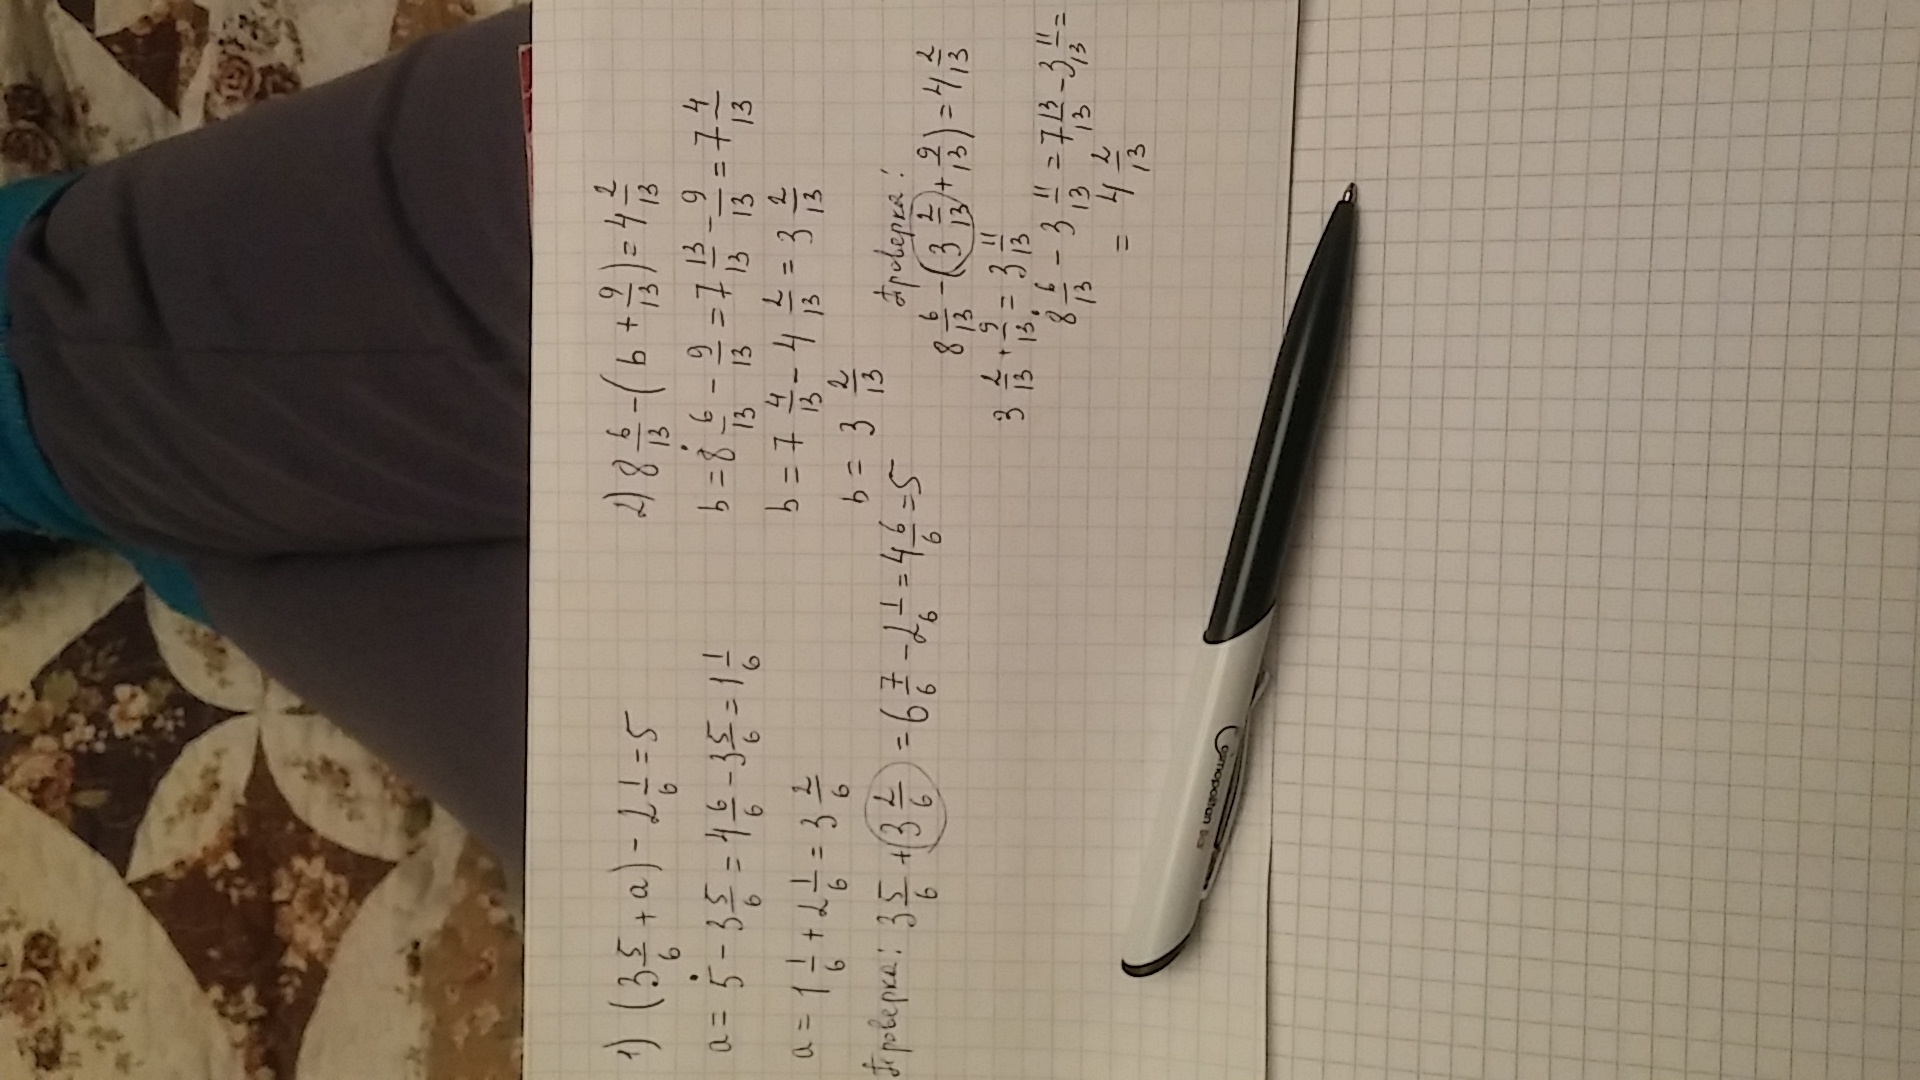 1) (3 5/6 + a) - 2 1/6 = 5
a = 5 - 3 5/6 = 4 6/6 - 3 5/6 = 1 1/6
a = 1 1/6 + 2 1/6 = 3 2/6
Проверка: 3 5/6 + 3 2/6 = 6 7/6 - 2 1/6 = 4 6/6 = 5
2) 8 6/13 - (b + 9/13) = 4 2/13
b = 8 6/13 - 9/13 = 7 13/13 - 9/13 = 7 4/13
b = 7 4/13 - 4 2/13 = 3 2/13
b = 3 2/13
Проверка:
8 6/13 - (3 2/13 + 9/13) = 4 2/13
3 2/13 + 9/13 = 3 11/13
8 6/13 - 3 11/13 = 7 13/13 - 3 11/13 =
= 4 2/13